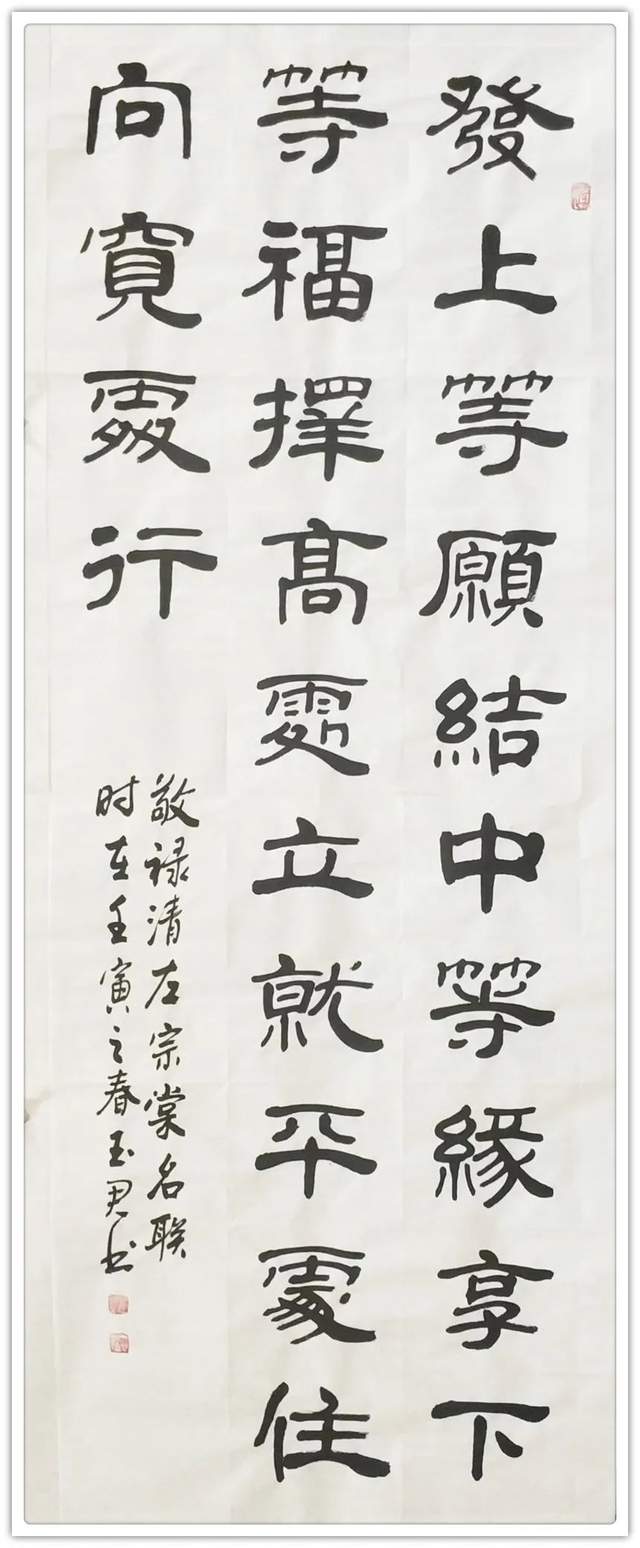 發上等願結中等緣享下
等福擇高處立就平處住
向寬處行
敬禄清左宗棠名联
时在壬寅之春玉君书